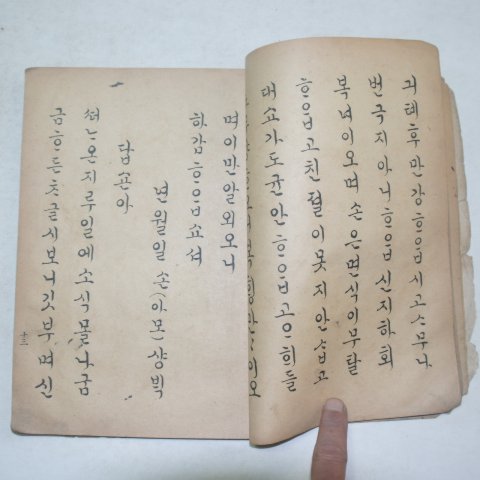 긔톄후만강ᄒᆞᄋᆞᆸ시고ᄉᆞ무나
번극지아니ᄒᆞᄋᆞᆸ신지하회
복모이오며손은면식이무탈
ᄒᆞᄋᆞᆸ고친졀이못지안ᄉᆞᆸ고
대쇼가도균안ᄒᆞᄋᆞᆸ고ᄋᆞ희들
이오
며이만알외오니
하감ᄒᆞᄋᆞᆸ쇼셔
년월일손(아모)샹ᄇᆡᆨ
답손아
ᄯᅥᄂᆞ온지루일에소식몰나굼
금ᄒᆞ든ᄎᆞ글시보니깃부며신
十三